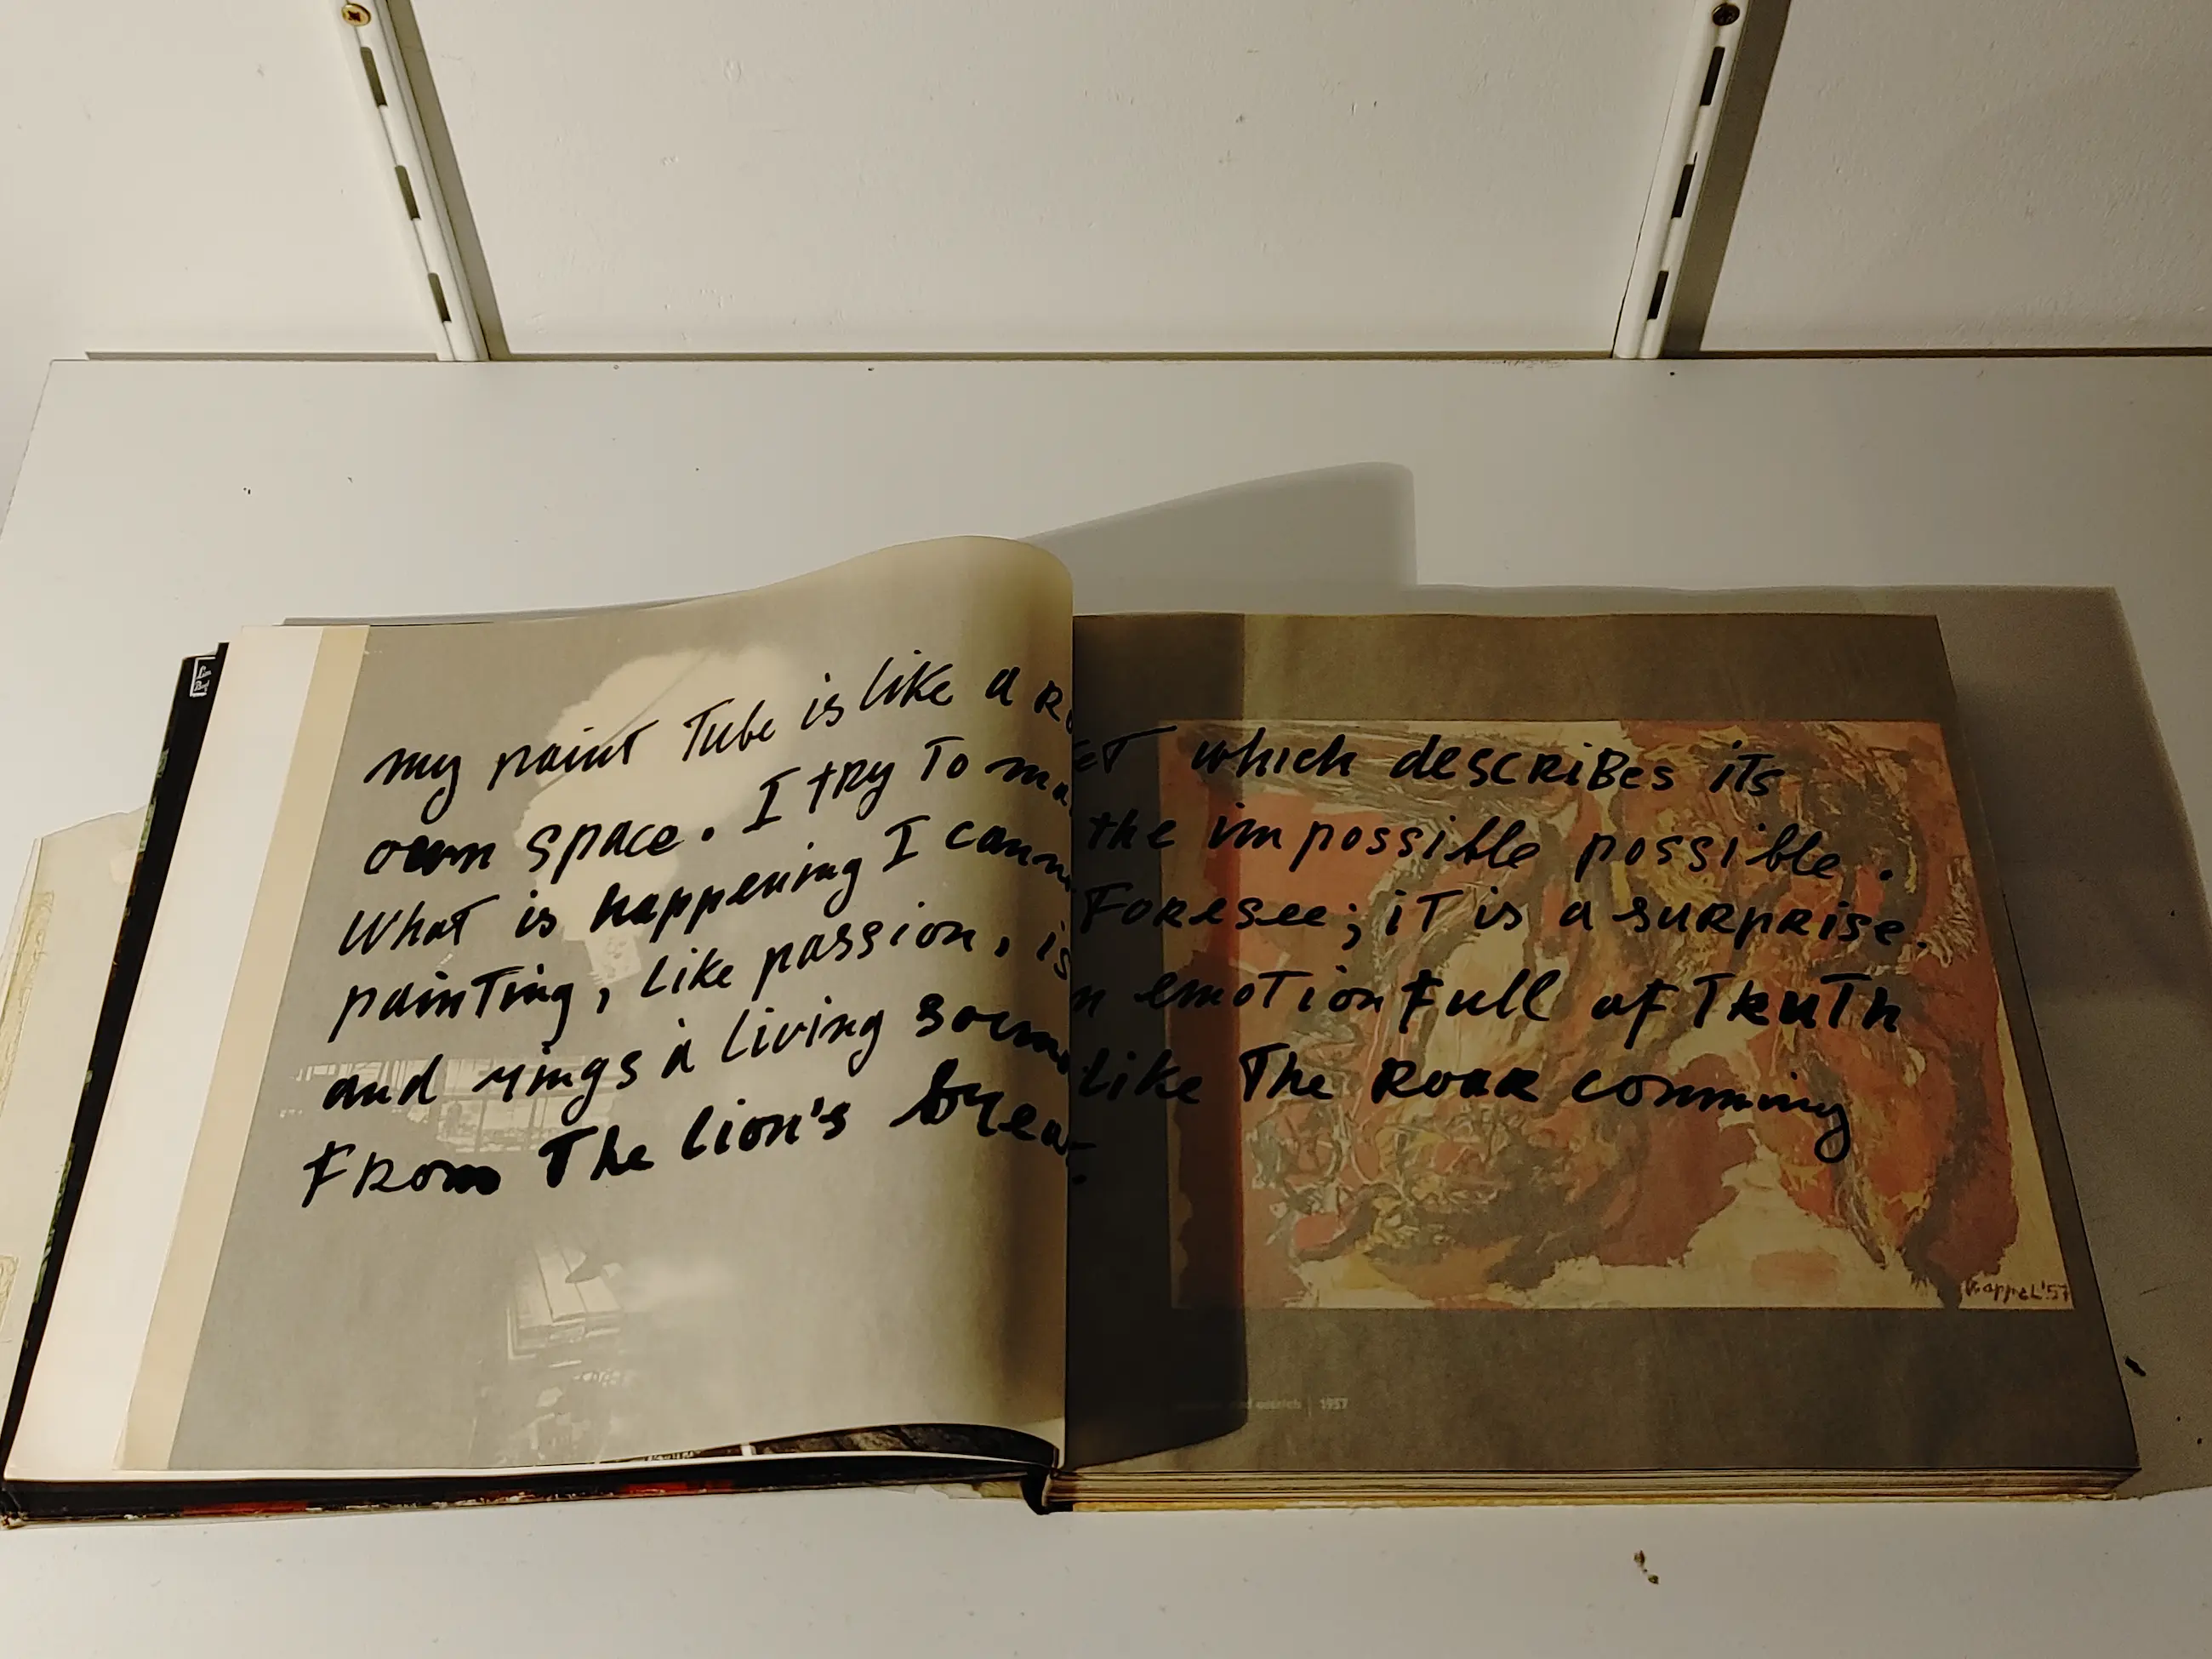 my paint Tube is like a R et which describes its
own space. I try To ma the impossible possible.
What is happening I cann Foresee; iT is a surprise.
painTing, like passion, is n emoTion Full of TRuTh
and rings a living soun like The Roar comming
From The lion's brea
k.appel '57
ostrich | 1957